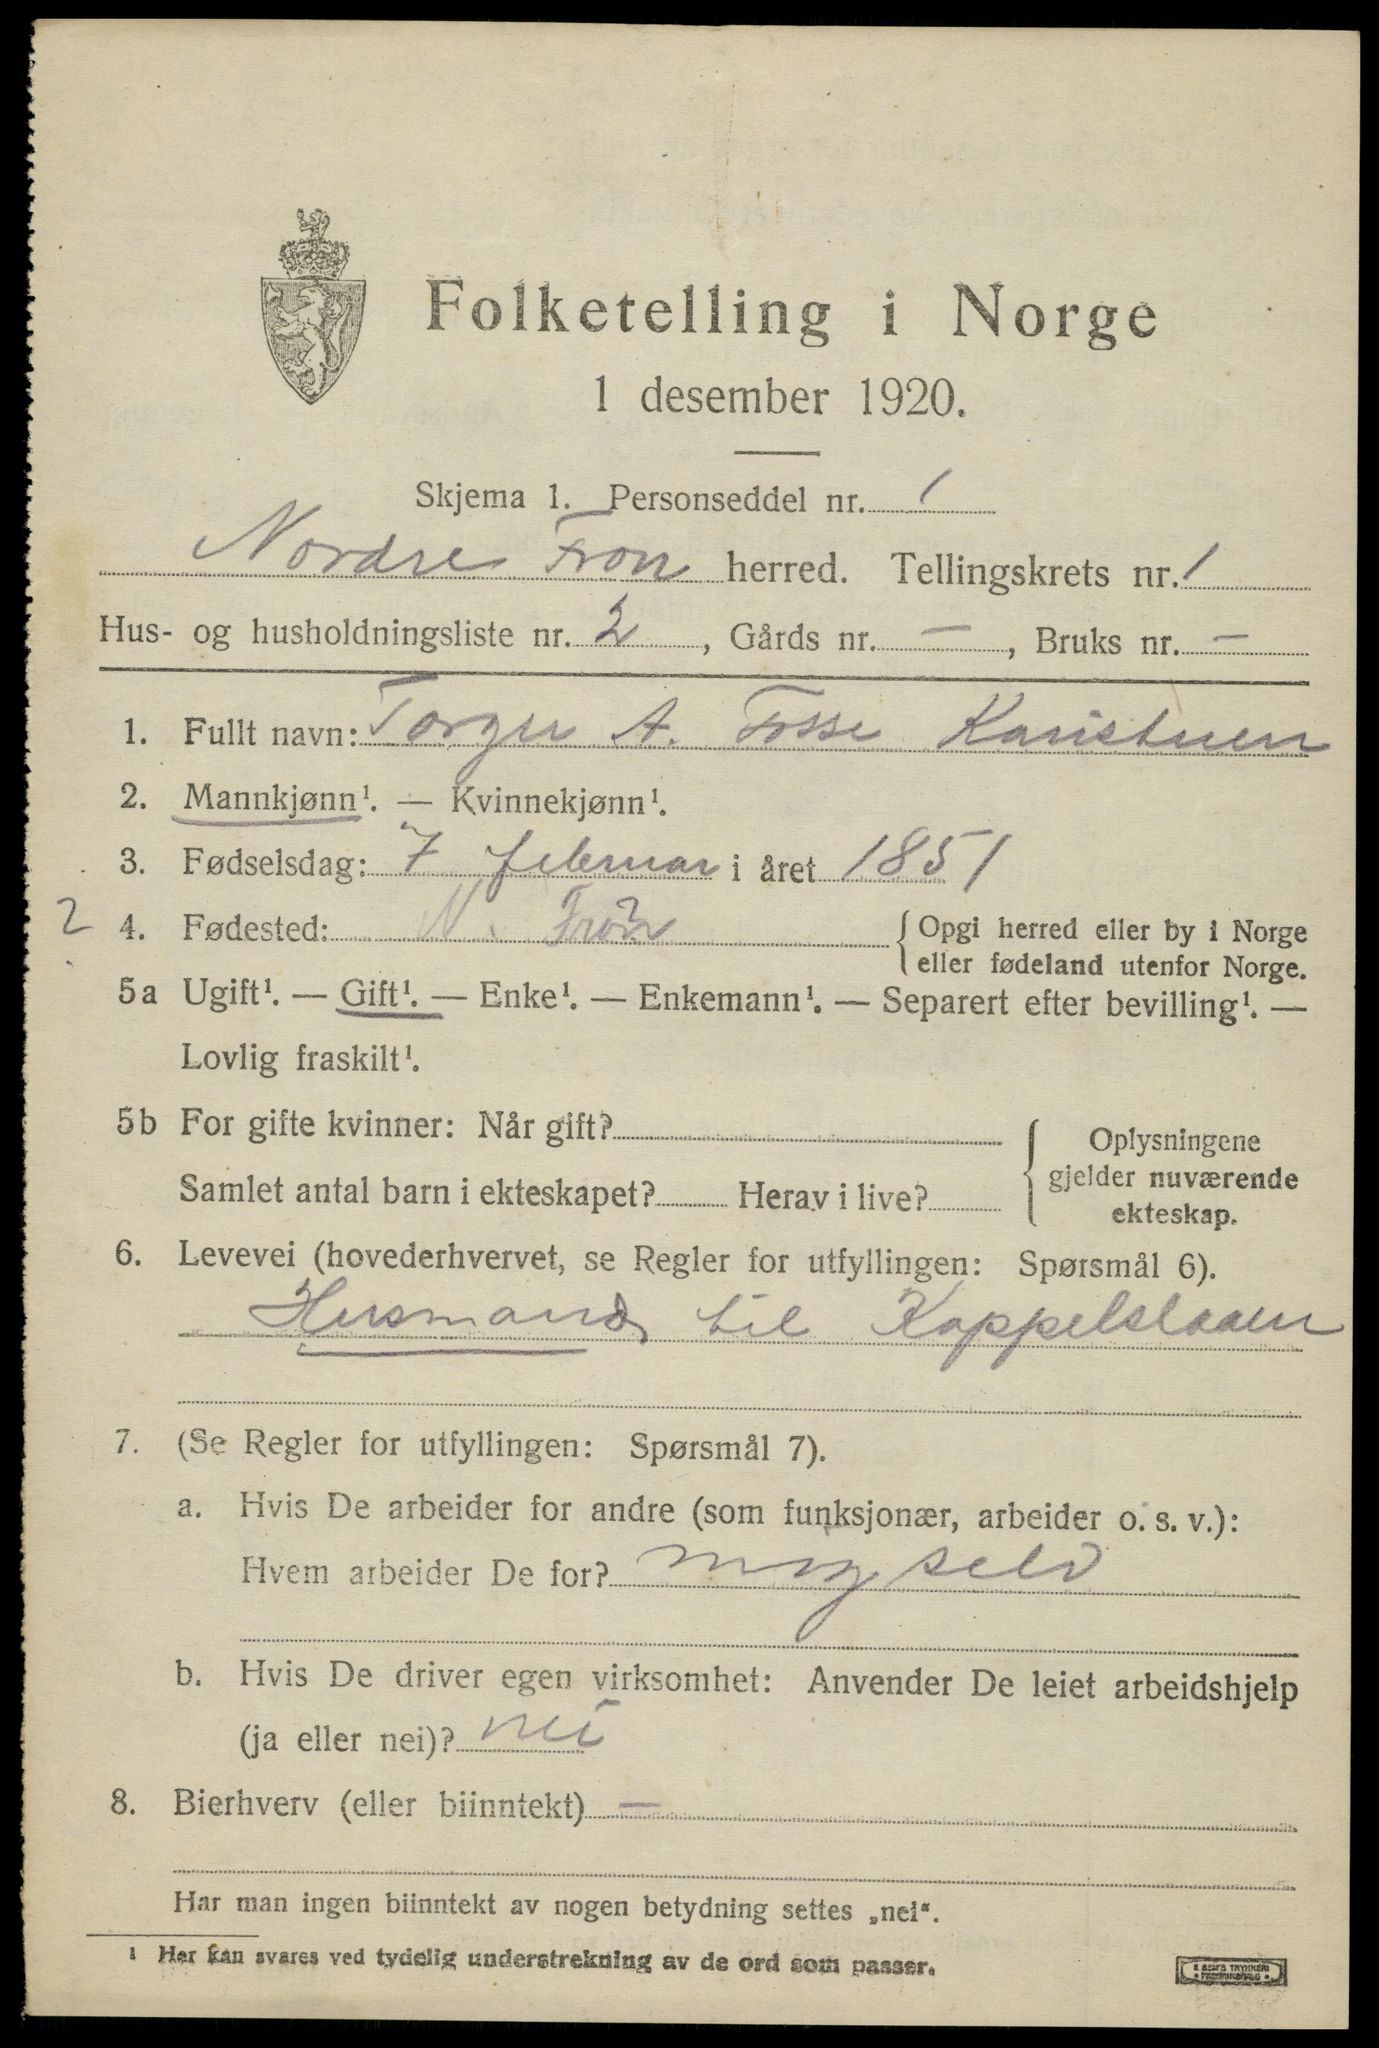 Folketelling i Norge
1 desember 1920.
Skjema 1. Personseddel nr. 1
Nordre Fron herred. Tellingskrets nr. 1
Hus- og husholdningsliste nr. 2, Gårds nr. —, Bruks nr. —
1. Fullt navn: Torger A. Fosse Karistuen
2. Mannkjønn¹. — Kvinnekjønn¹.
3. Fødselsdag: 7 februar i året 1851
2 4. Fødested: N. Fron { Opgi herred eller by i Norge
eller fødeland utenfor Norge.
5a Ugift¹. — Gift¹. — Enke¹. — Enkemann¹. — Separert efter bevilling¹. —
Lovlig fraskilt¹.
5b For gifte kvinner: Når gift? { Oplysningene
gjelder nuværende
Samlet antal barn i ekteskapet? Herav i live?
ekteskap.
6. Levevei (hovederhvervet, se Regler for utfyllingen: Spørsmål 6).
Husmand til Koppelslaaen
7. (Se Regler for utfyllingen: Spørsmål 7).
a. Hvis De arbeider for andre (som funksjonær, arbeider o. s. v.):
Hvem arbeider De for? mig selv
b. Hvis De driver egen virksomhet: Anvender De leiet arbeidshjelp
(ja eller nei)? nei
8. Bierhverv (eller biinntekt) —
Har man ingen biinntekt av nogen betydning settes „nei“.
1 Her kan svares ved tydelig understrekning av de ord som passer.